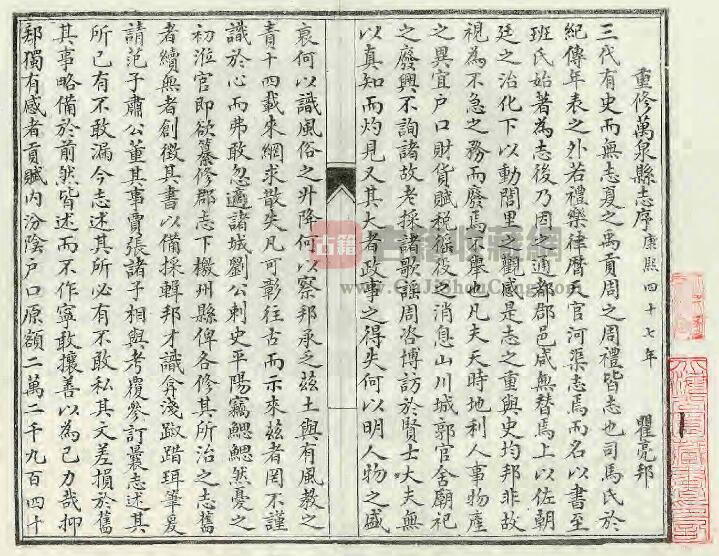 重修萬泉縣志序 康熙四十七年 瞿亮邦
三代有史而無志夏之禹貢周之周禮皆志也司馬氏於
紀傳年表之外若禮樂律曆天官河渠志焉而名以書至
班氏始著為志後乃因之通都郡邑咸無替焉上以佐朝
廷之治化下以動閭里之觀感是志之重與史均邦非故
視為不急之務而廢焉不舉也凡夫天時地利人事物產
之異宜戶口財貨賦稅徭役之消息山川城郭官舍廟祀
之廢興不詢諸故老採諸歌謠周咨博訪於賢士大夫無
以真知而灼見又其大者政事之得失何以明人物之盛
衰何以識風俗之升降何以察邦承乏茲土與有風教之
責十四載來網求散失凡可彰往古而示來茲者罔不謹
識於心而弗敢忽適諸城劉公刺史平陽竊鰓鰓然憂之
初涖官即欲纂修郡志下檄州縣俾各修其所治之志舊
者續無者創徵其書以備採輯邦才識弇淺踧踖珥筆爰
請范子肅公董其事賈張諸子相與考覆參訂曩志述其
所已有不敢漏今志述其所必有不敢私其文差損於舊
其事略備於前然皆述而不作寧敢攘善以為己力哉抑
邦獨有感者貢賦內汾陰戶口原額二萬二千九百四十
古籍
古籍收藏網
www.GuJiShouCang.com